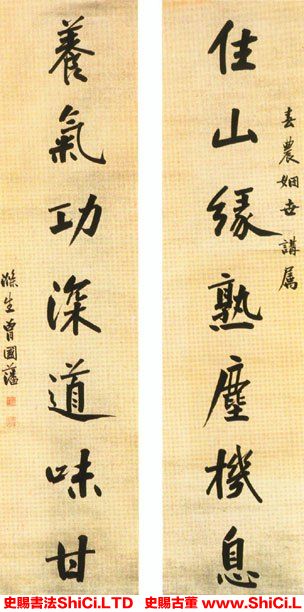 春農姻世講属
住山緣熟塵機息
養氣功深道味甘
滌生曾國藩
史賜書法ShiCi.LTD 史賜古董 www.ShiCi.L